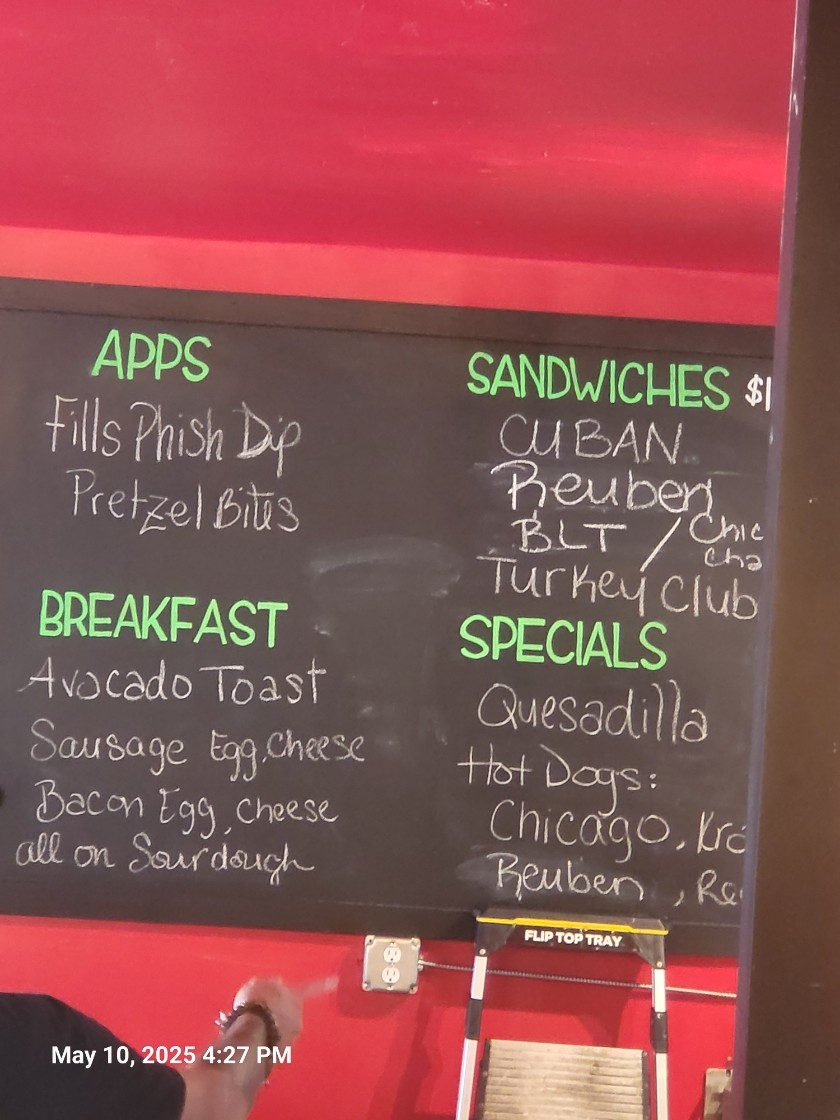 APPS
Fills Phish Dip
Pretzel Bites
BREAKFAST
Avocado Toast
Sausage Egg, Cheese
Bacon Egg, Cheese
all on Sourdough
SANDWICHES $1
CUBAN
Reuben
BLT / Chic
Cha
Turkey Club
SPECIALS
Quesadilla
Hot Dogs:
Chicago, Kra
Reuben, Re
FLIP TOP TRAY
May 10, 2025 4:27 PM